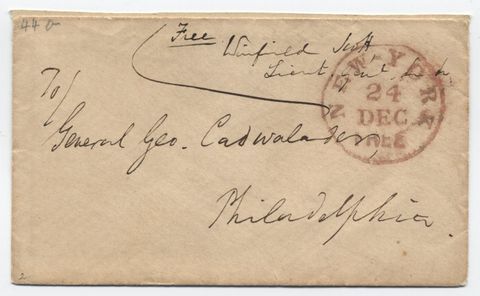 44
Free
Winfield Scott
Lieut. Genl.
NEW-YORK
24
DEC
FREE
To/
General Geo. Cadwalader,
Philadelphia.
2